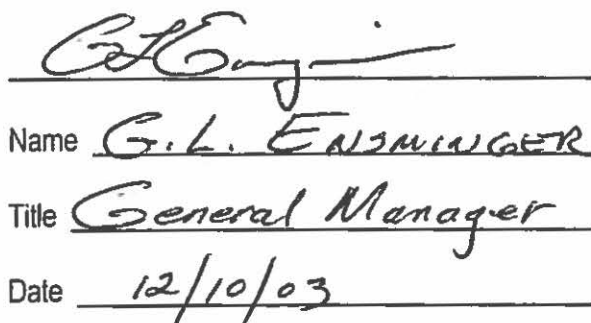 Name G.L. ENSMINGER
Title General Manager
Date 12/10/03